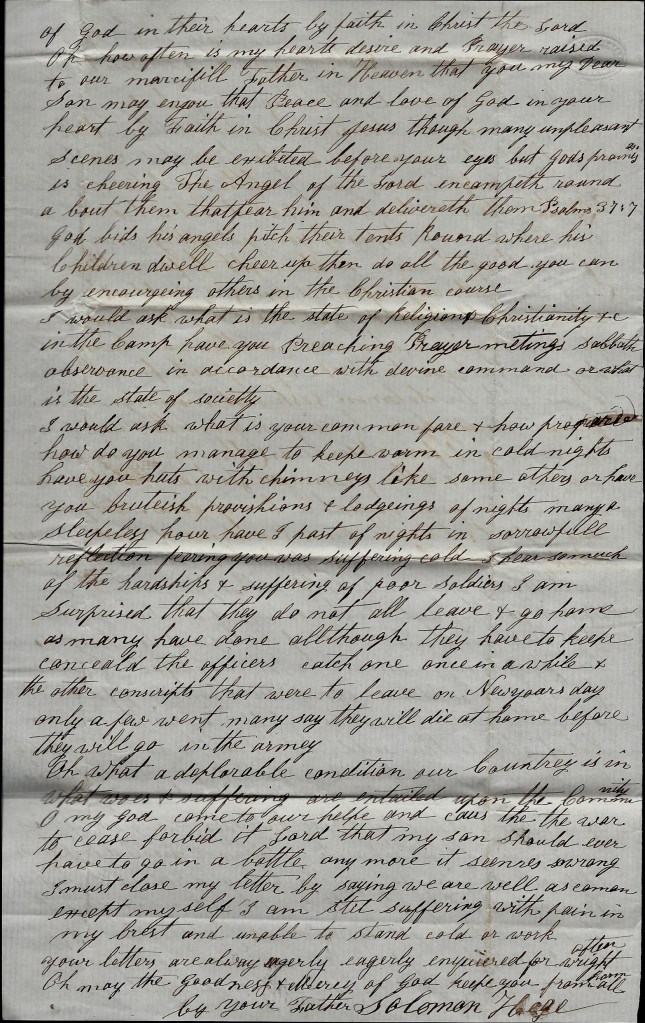 of God in their hearts by faith in Christ the Lord
Oh how often is my hearts desire and Prayer raised
to our marcifill Father in Heaven that you my Dear
Son may enjou that Peace and love of God in your
heart by Faith in Christ Jesus though many unpleasant
Scenes may be exibited before your eyes but gods promises
is cheering The Angel of the Lord encampeth round
a bout them that fear him and delivereth them Psalms 37:7
God bids his angels pitch their tents Round where his
Children dwell cheer up then do all the good you can
by encourgeing others in the Christian course
I would ask what is the state of Religion & Christianity & c
in the Camp have you Preaching Prayer metings Sabbath
observance in accordance with devine command or what
is the state of societty
I would ask what is your common fare & how prepared
how do you manage to keepe warm in cold nights
have you huts with chimneys like some others or have
you bruteish provishions & lodgeings of nights many a
sleepless hour have I part of nights in sorrowfull
reflection fearing you was suffering cold I hear so much
of the hardships & suffering of poor soldiers I am
surprised that they do not all leave & go home
as many have done allthough they have to keepe
conceald the officers catch one once in a while &
the other conscripts that were to leave on Newyears day
only a few went many say they will die at home before
they will go in the armey
Oh what a deplorable condition our Countrey is in
what woes & suffering are entailed upon the Community
O my God come to our helpe and caus the the war
to cease forbid it Lord that my son should ever
have to go in a battle any more it seemes so wrong
I must close my letter by saying we are well as coman
except my self I am still suffering with pain in
my brest and unable to stand cold or work
your letters are alway eagerly enquiered for wright often
Oh may the Goodness & Mercy of God keepe you from all harm
by your Father Solomon Hege